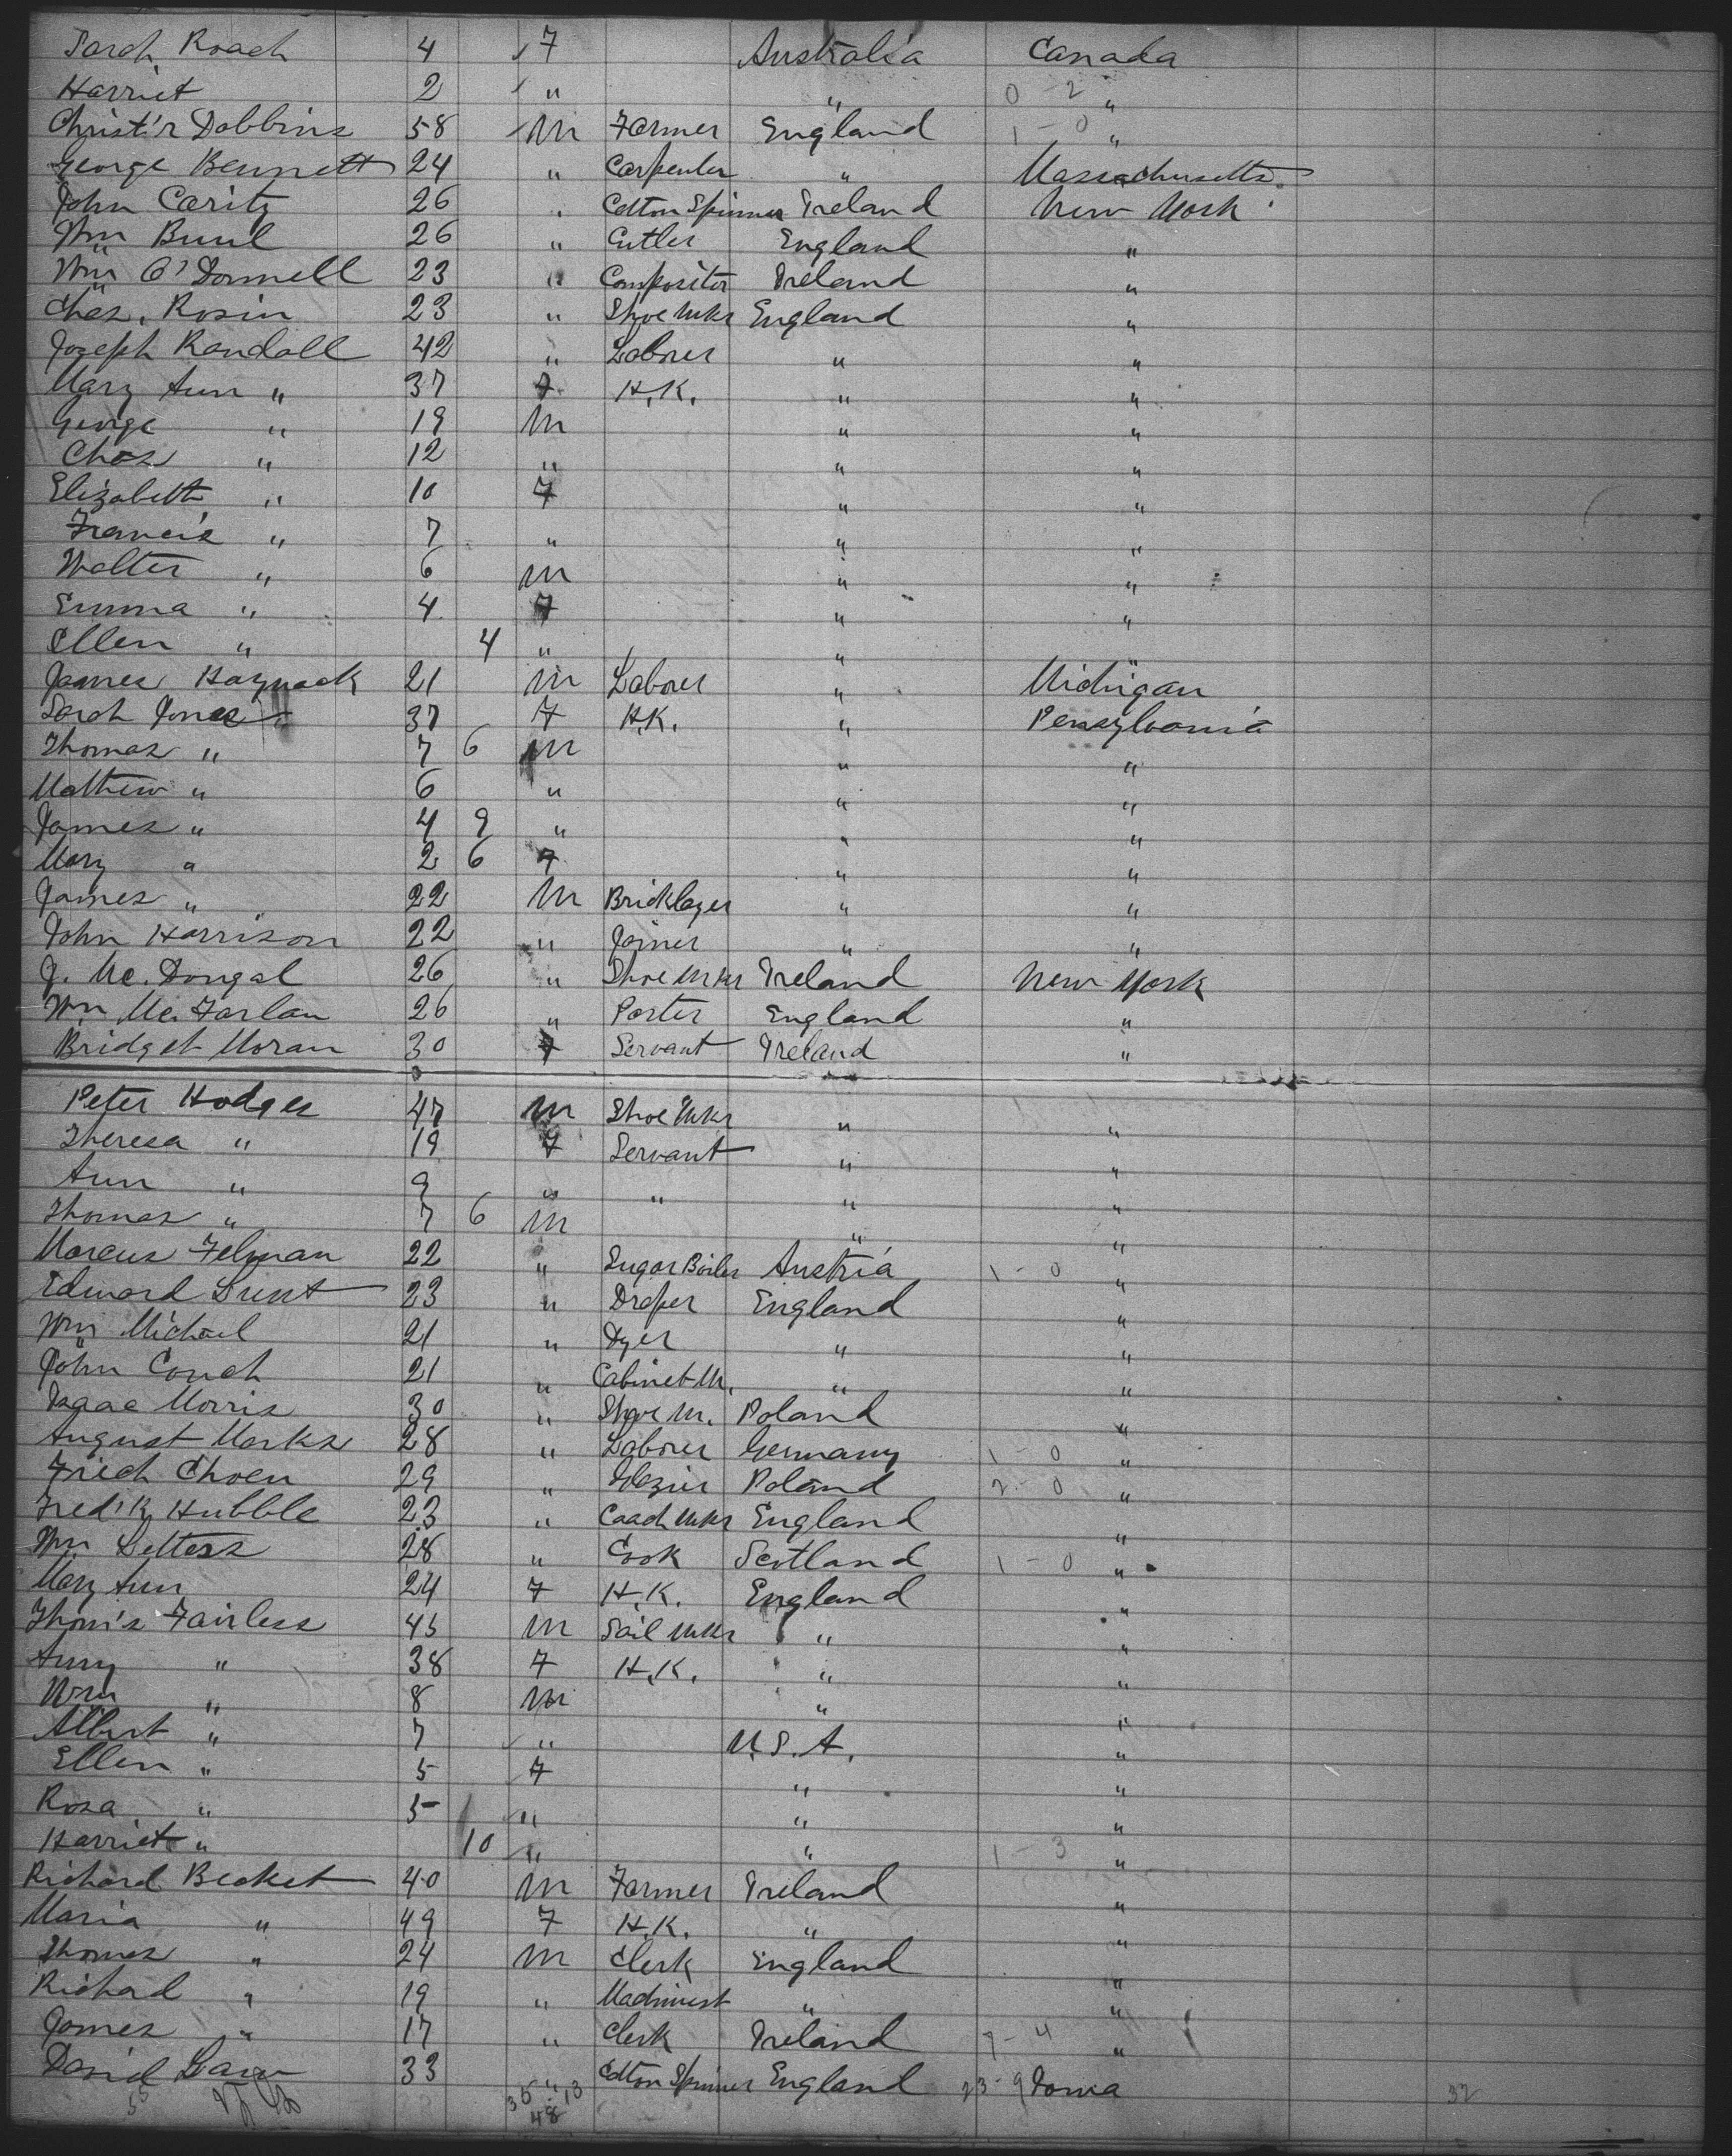 Sarah Roach 4 7 Australia Canada
Harriet 2 " " 0 - 2 "
Christ'r Dobbins 58 M Farmer England 1 - 0 "
George Bennett 24 " Carpenter " Massachusetts
John Caritz 26 " Cotton Spinner Ireland New York
Wm 26 " Cutler England "
Wm O'Donnell 23 " Compositor Ireland "
Chas. Rosin 23 " Shoe Mkr England "
Joseph Randall 42 " Laborer " "
Mary Ann " 37 7 H.K. " "
George " 19 M " "
Chas " 12 " " "
Elizabeth " 10 7 " "
Francis " 7 " " "
Walter " 6 M " "
Emma " 4 7 " "
Ellen " 4 " " "
James 21 M Laborer " Michigan
Sarah Jones 37 7 H.K. " Pensylvania
Thomas " 7 6 M " "
Mathew " 6 " " "
James " 4 9 " " "
Mary " 2 6 7 " "
James " 22 M Bricklayer " "
John Harrison 22 " Joiner " "
J. Mc.Dongal 26 " Shoe Mkr Ireland New York
Wm Mc.Farlan 26 " Porter England "
Bridget Moran 30 7 Servant Ireland "
Peter Hodges 47 M Shoe Mkr " "
Theresa " 19 7 Servant " "
Ann " 9 " " " "
Thomas " 7 6 M " "
Marcus Felman 22 " Sugar Boiler Austria 1 - 0 "
Edward 23 " Draper England "
Wm Michael 21 " Dyer " "
John Couch 21 " Cabinet M. " "
Isaac Morris 30 " Shoe M. Poland "
August Marks 28 " Laborer Germany 1 - 0 "
Fried Choen 29 " Glazier Poland 2 - 0 "
Fred'k Hubble 23 " Coach Mkr England "
Wm Letters 28 " Cook Scotland 1 - 0 "
Mary Ann 24 7 H.K. England "
Thom's Fairless 45 M Sail Mkr " "
Amy " 38 7 H.K. " "
Wm " 8 M " "
Albert " 7 " U.S.A. "
Ellen " 5 7 " "
Rosa " 5 " " "
Harriet " 10 " " 1 - 3 "
Richard Becket 40 M Farmer Ireland "
Maria " 49 7 H.K. " "
Thomas " 24 M Clerk England "
Richard " 19 " Machinist " "
James " 17 " Clerk Ireland 7 - 4 "
David Law 33 " Cotton Spinner England 23 - 9 Iowa
55 35 13 32
48